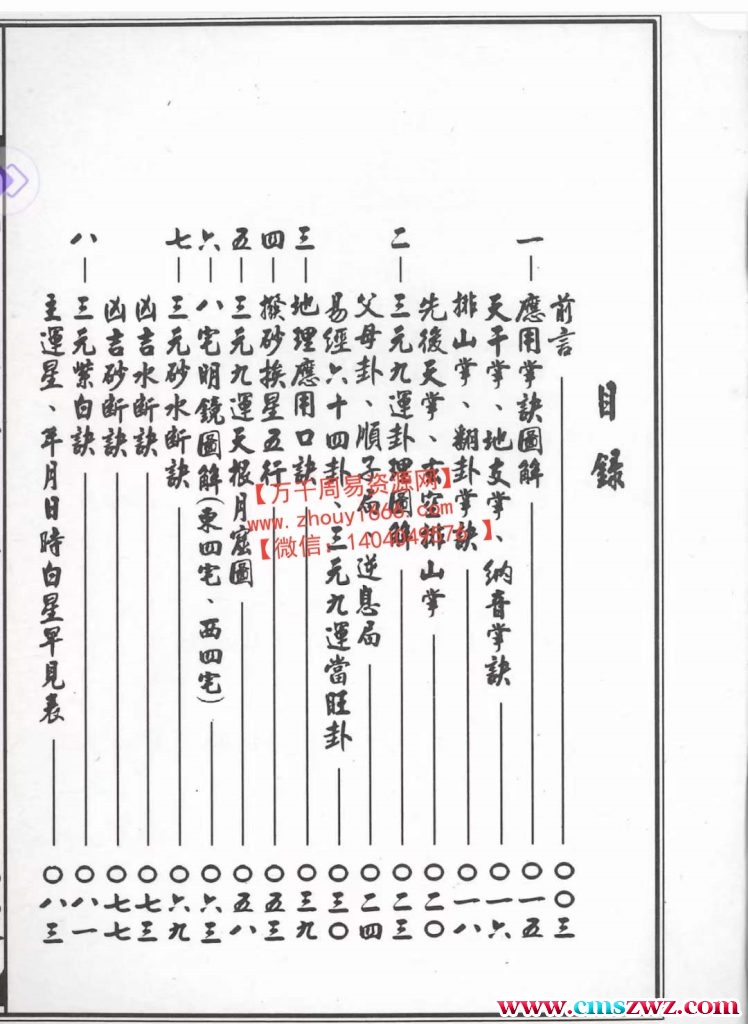 目錄
前言 〇〇三
一 應用掌訣圖解 〇一五
天干掌、地支掌、納音掌訣 〇一六
排山掌、翻卦掌訣 〇一八
先後天掌、玄空排山掌 〇二〇
二 三元九運卦理圖解 〇二三
父母卦、順子局、逆息局 〇二四
易經六十四卦、三元九運當旺卦 〇三〇
三 地理應用口訣 〇三九
四 撥砂挨星五行 〇五三
五 三元九運天根月窟圖 〇五八
六 八宅明鏡圖解(東四宅、西四宅) 〇六三
七 三元砂水斷訣 〇六九
凶吉水斷訣 〇七三
凶吉砂斷訣 〇七七
八 三元紫白訣 〇八一
主運星、年月日時白星早見表 〇八三
【万千周易资源网】
www.zhouy1868.com
【微信:1404049876】
www.cmszwz.com